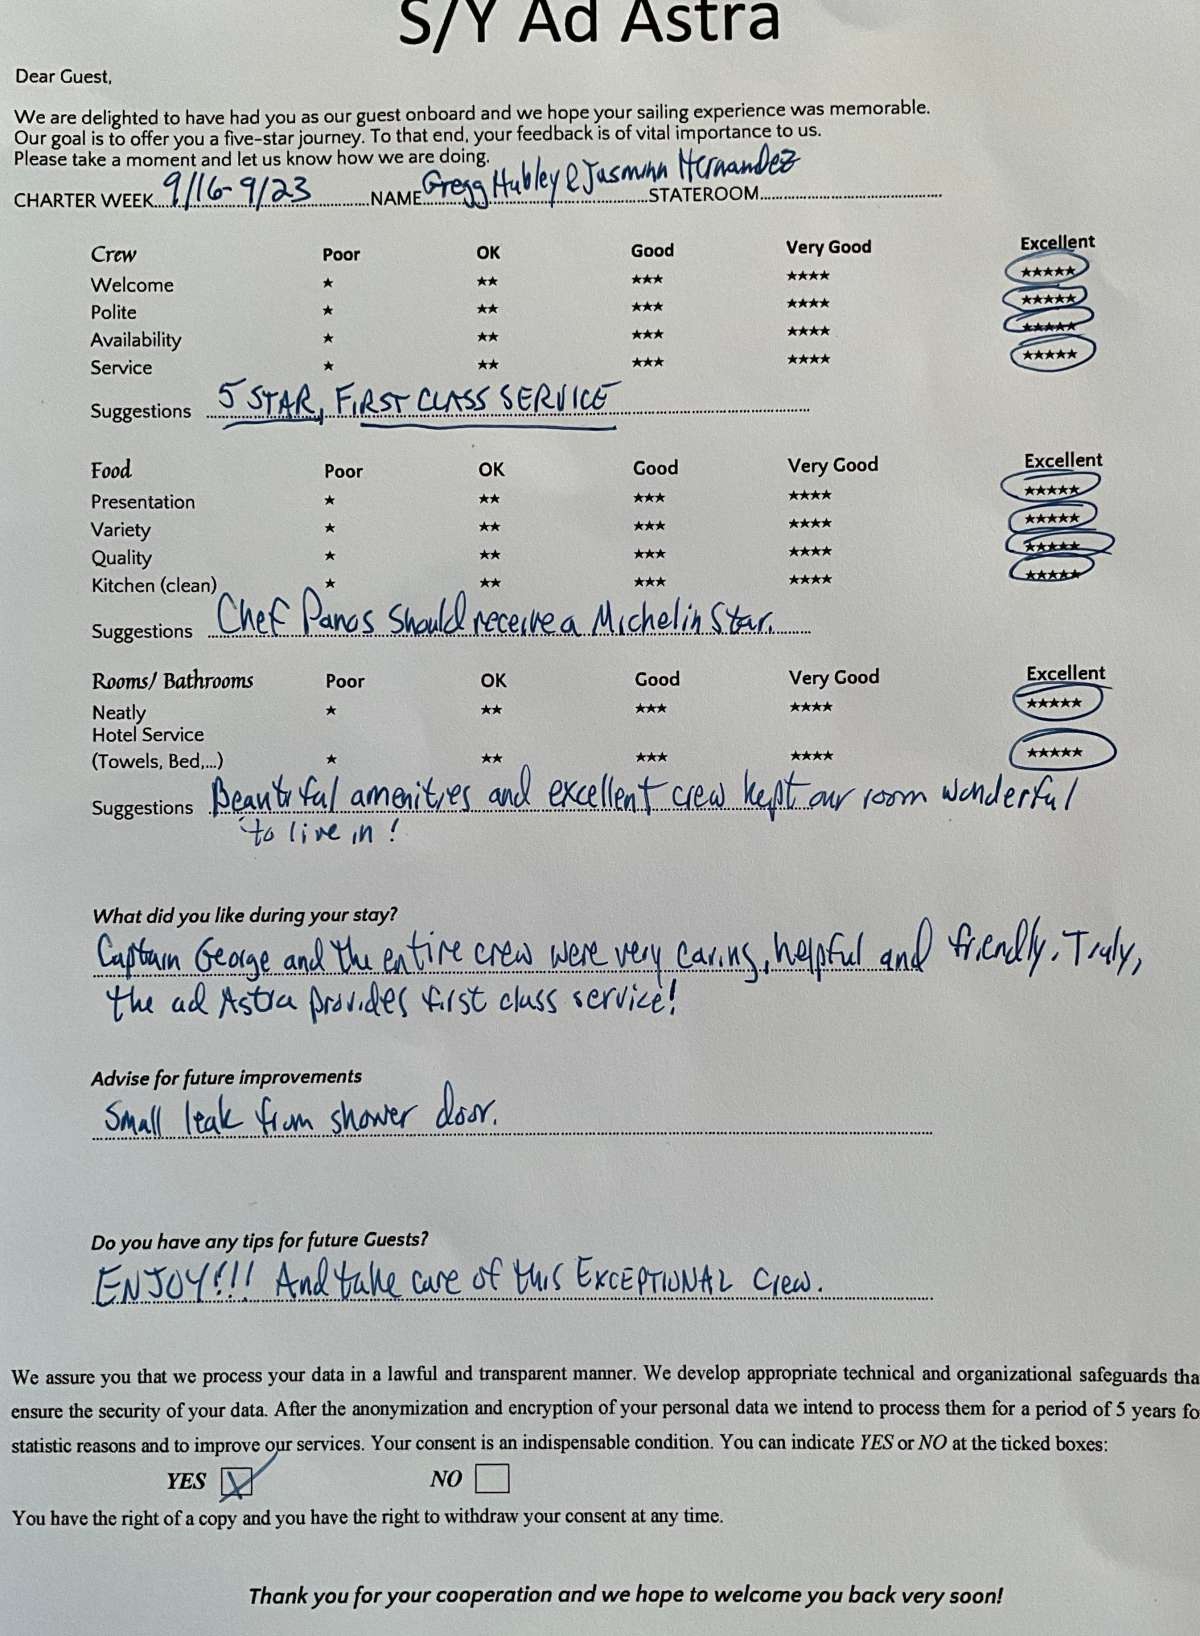 S/Y Ad Astra
Dear Guest,
We are delighted to have had you as our guest onboard and we hope your sailing experience was memorable.
Our goal is to offer you a five-star journey. To that end, your feedback is of vital importance to us.
Please take a moment and let us know how we are doing.
CHARTER WEEK 9/16-9/23 NAME Gregg Hubley & Jasminn Hernandez STATEROOM
Crew Poor OK Good Very Good Excellent
Welcome ★ ★★ ★★★ ★★★★ ★★★★★
Polite ★ ★★ ★★★ ★★★★ ★★★★★
Availability ★ ★★ ★★★ ★★★★ ★★★★★
Service ★ ★★ ★★★ ★★★★ ★★★★★
Suggestions 5 STAR, FIRST CLASS SERVICE
Food Poor OK Good Very Good Excellent
Presentation ★ ★★ ★★★ ★★★★ ★★★★★
Variety ★ ★★ ★★★ ★★★★ ★★★★★
Quality ★ ★★ ★★★ ★★★★ ★★★★★
Kitchen (clean) ★ ★★ ★★★ ★★★★ ★★★★★
Suggestions Chef Panos should receive a Michelin Star.
Rooms/ Bathrooms Poor OK Good Very Good Excellent
Neatly ★ ★★ ★★★ ★★★★ ★★★★★
Hotel Service
(Towels, Bed,...) ★ ★★ ★★★ ★★★★ ★★★★★
Suggestions Beautiful amenities and excellent crew kept our room wonderful
to live in!
What did you like during your stay?
Captain George and the entire crew were very caring, helpful and friendly. Truly,
the ad Astra provides first class service!
Advise for future improvements
Small leak from shower door.
Do you have any tips for future Guests?
ENJOY!!! And take care of this EXCEPTIONAL Crew.
We assure you that we process your data in a lawful and transparent manner. We develop appropriate technical and organizational safeguards tha
ensure the security of your data. After the anonymization and encryption of your personal data we intend to process them for a period of 5 years fo
statistic reasons and to improve our services. Your consent is an indispensable condition. You can indicate YES or NO at the ticked boxes:
YES X NO
You have the right of a copy and you have the right to withdraw your consent at any time.
Thank you for your cooperation and we hope to welcome you back very soon!